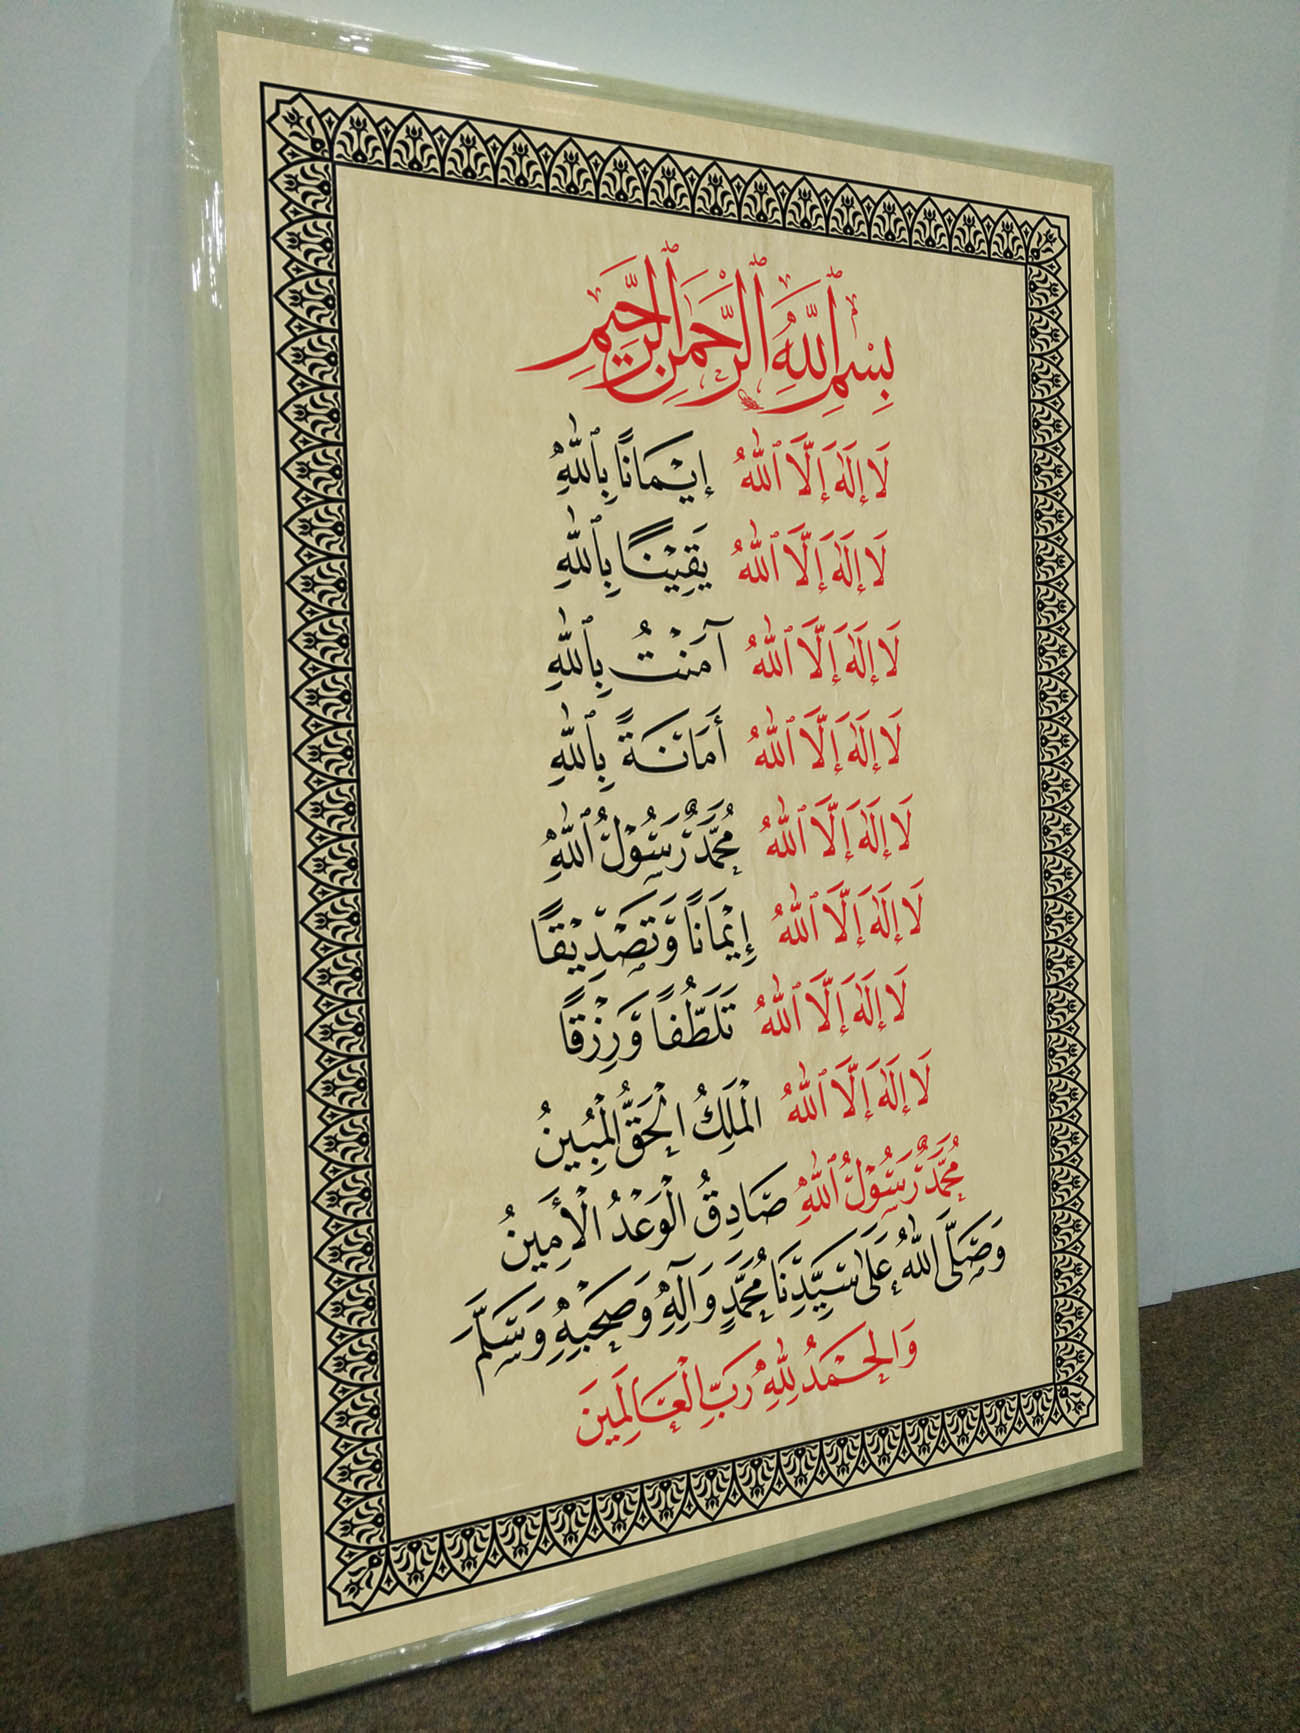 بِسْمِ ٱللَّهِ ٱلرَّحْمَنِ ٱلرَّحِيمِ
لَا إِلَهَ إِلَّا ٱللهُ إيْمَانًا بِٱللهِ
لَا إِلَهَ إِلَّا ٱللهُ يَقِيْنًا بِٱللهِ
لَا إِلَهَ إِلَّا ٱللهُ آمَنْتُ بِٱللهِ
لَا إِلَهَ إِلَّا ٱللهُ أَمَانَةً بِٱللهِ
لَا إِلَهَ إِلَّا ٱللهُ مُحَمَّدٌ رَسُوْلُ ٱللهِ
لَا إِلَهَ إِلَّا ٱللهُ إِيْمَانًا وَتَصْدِيْقًا
لَا إِلَهَ إِلَّا ٱللهُ تَلَطُّفًا وَرِزْقًا
لَا إِلَهَ إِلَّا ٱللهُ الْمَلِكُ الْحَقُّ الْمُبِينُ
مُحَمَّدٌ رَسُوْلُ ٱللهِ صَادِقُ الْوَعْدُ الْأَمِينُ
وَصَلَّى اللهُ عَلَى سَيِّدِنَا مُحَمَّدٍ وَآلِهِ وَصَحْبِهِ وَسَلَّمَ
وَالْحَمْدُ لِلهِ رَبِّ الْعَالَمِينَ